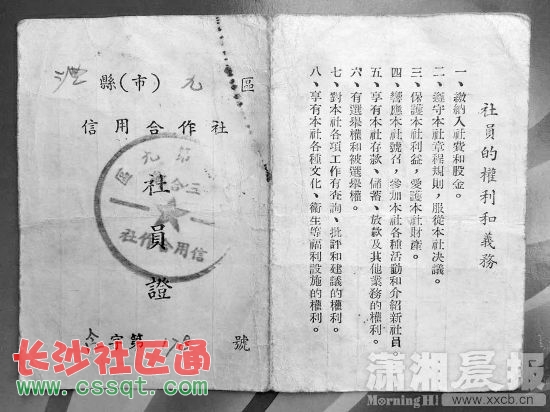 縣(市) 九 區
信用合作社
社員證
字第 號
第九區
信用合作社
社員的權利和義務
一、繳納入社費和股金。
二、遵守本社章程規則，服從本社决議。
三、保護本社利益，愛護本社財產。
四、響應本社號召，參加本社各種活動和介紹新社員。
五、享有本社存款、儲蓄、放款及其他業務的權利。
六、有選舉權和被選舉權。
七、對本社各項工作有查詢、批評和建議的權利。
八、享有本社各種文化、衛生等福利設施的權利。
长沙社区通
www.cssqt.com
瀟湘晨報
Morning H
www.xxcb.cn